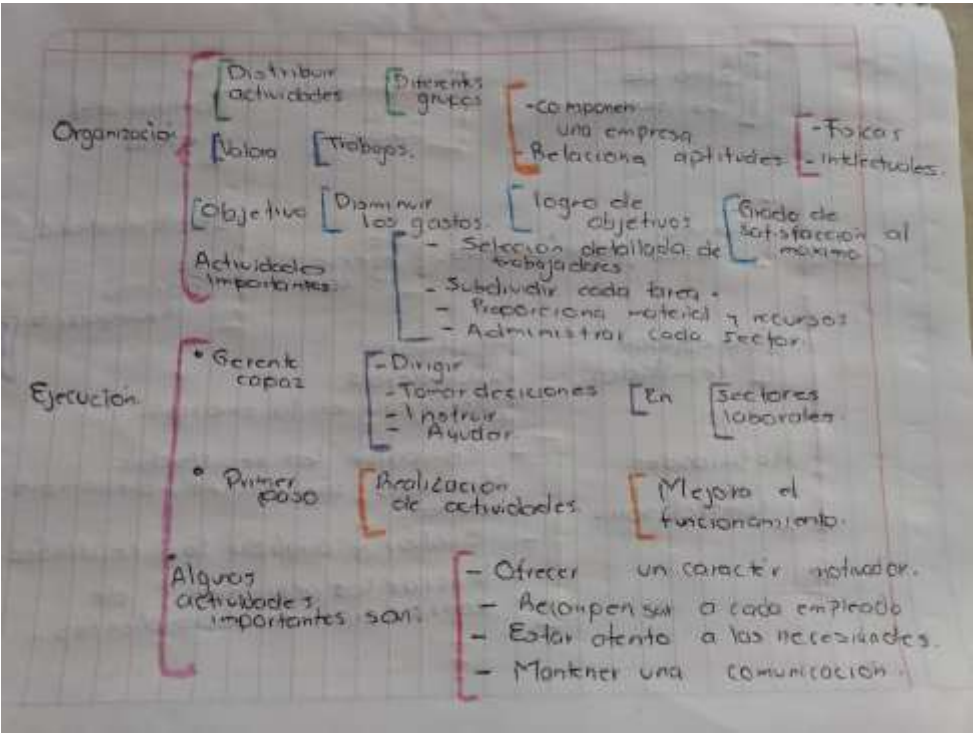 Organización
Distribuir
actividades
Diferentes
grupos
- componen
una empresa
- Relaciona aptitudes
- Físicas
- intelectuales.
Valora
Trabajos.
Objetivo
Disminuir
los gastos.
logro de
objetivos
Grado de
satisfacción al
maximo
Actividades
importantes.
- Selección detallada de
trabajadores
- Subdividir cada tarea.
- Proporciona material y recursos
- Administrar cada sector.
Ejecución
• Gerente
capaz
- Dirigir
- Tomar desiciones
- Instruir
- Ayudar
En
sectores
laborales.
• Primer
paso
Realización
de actividades
Mejora el
funcionamiento.
• Algunas
actividades
importantes son:
- Ofrecer un caractér motivador.
- Recompensar a cada empleado
- Estar atento a las necesidades.
- Mantener una comunicación.